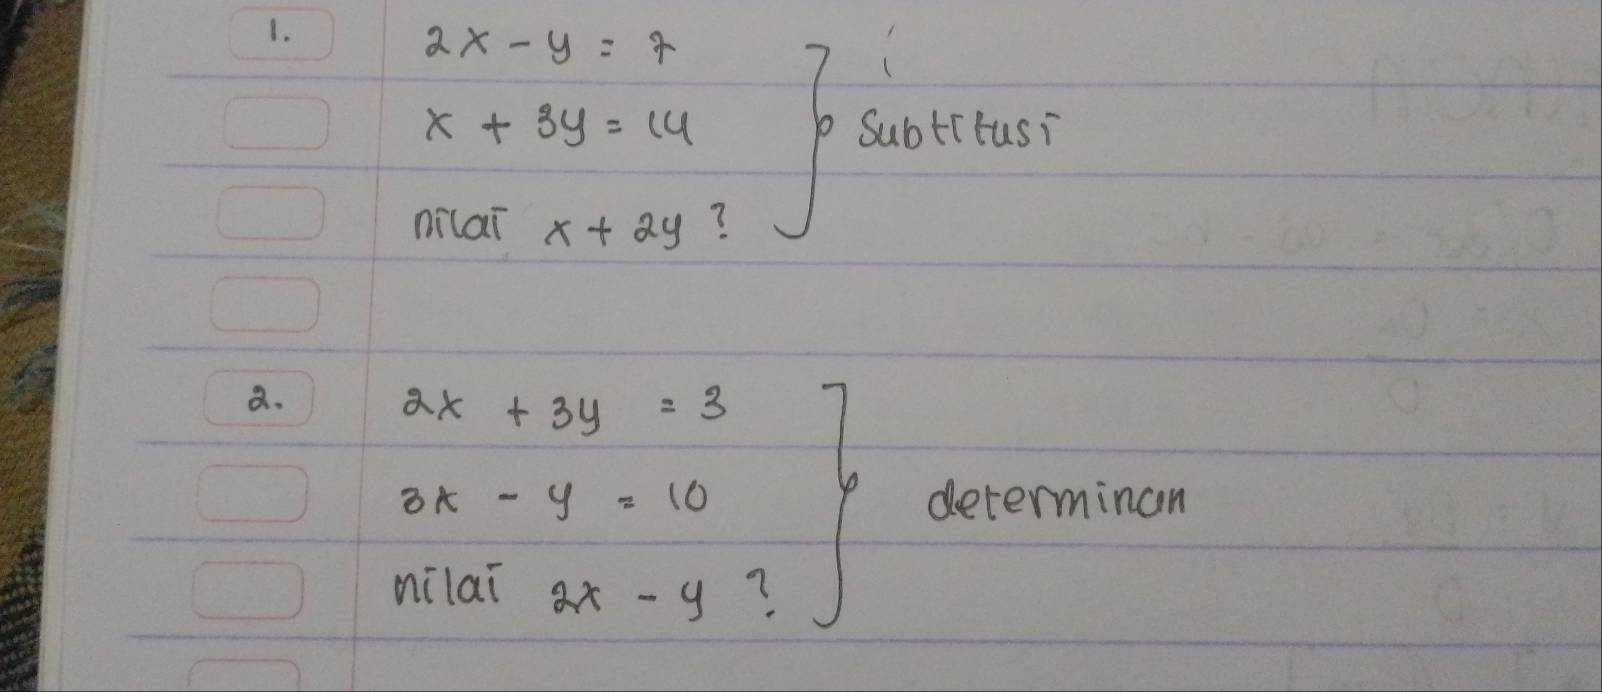 1. 2x - y = 7
x + 3y = 14
Subtitusi
nilai x + 2y ?
2. 2x + 3y = 3
3x - y = 10
determinan
nilai 2x - y ?